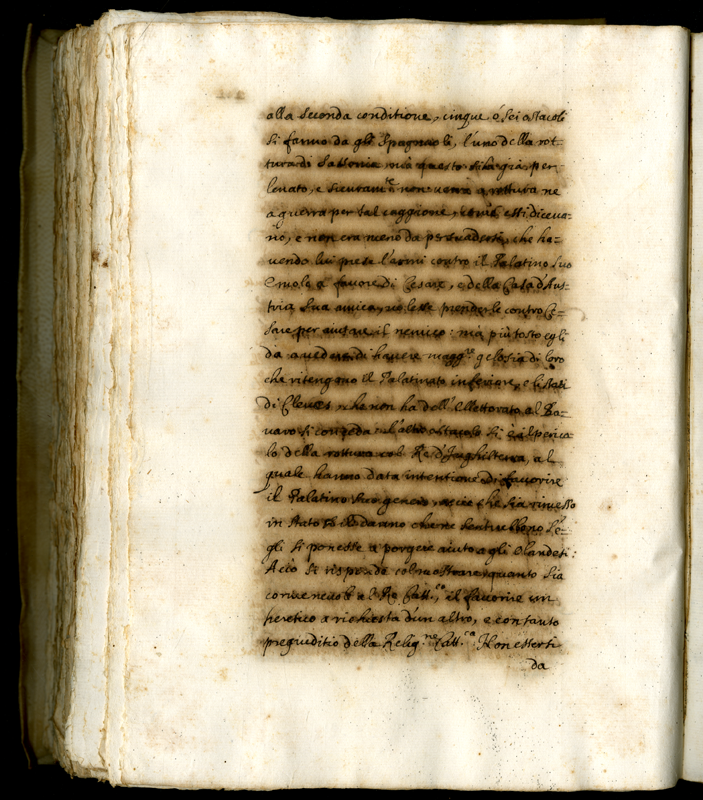 alla seconda conditione, cinque ó sei ostacoli
si fanno da gli Spagnuoli, l'uno della rot=
tura di Sassonia, mà questo si hà già per
levato, e sicuram.te non verrà a rottura ne
a guerra per tal caggione, essi diceva=
no, e non era meno da persuadersi, che ha=
vendo lui prese l'armi contro il Palatino suo
Emolo a favore di Cesare, e della Casa d'Aus=
tria sua amica, volesse prenderle contro Ce=
sare per aiutare il nemico: mà più tosto egli
dà a vedere di havere magg.re gelosia di loro
che ritengano il Palatinato inferiore, e li stati
di Cleves, che non ha dell'Elettorato al Ba=
varo si conceda: l'altro ostacolo si è il perico=
lo della rottura col Rè d'Inghilterra, al
quale hanno data intentione di favorire
il Palatino suo genero, acciò che sia rimesso
in stato, e lo danno che ne sentirebbono se e=
gli si ponesse a porgere aiuto a gli Olandesi:
Acciò si risponde col mostrare quanto sia
convenevole al Rè Catt.co, il favorire un
heretico a richiesta d'un altro, e con tanto
pregiuditio della Relig.ne Catt.ca Non essersi
da